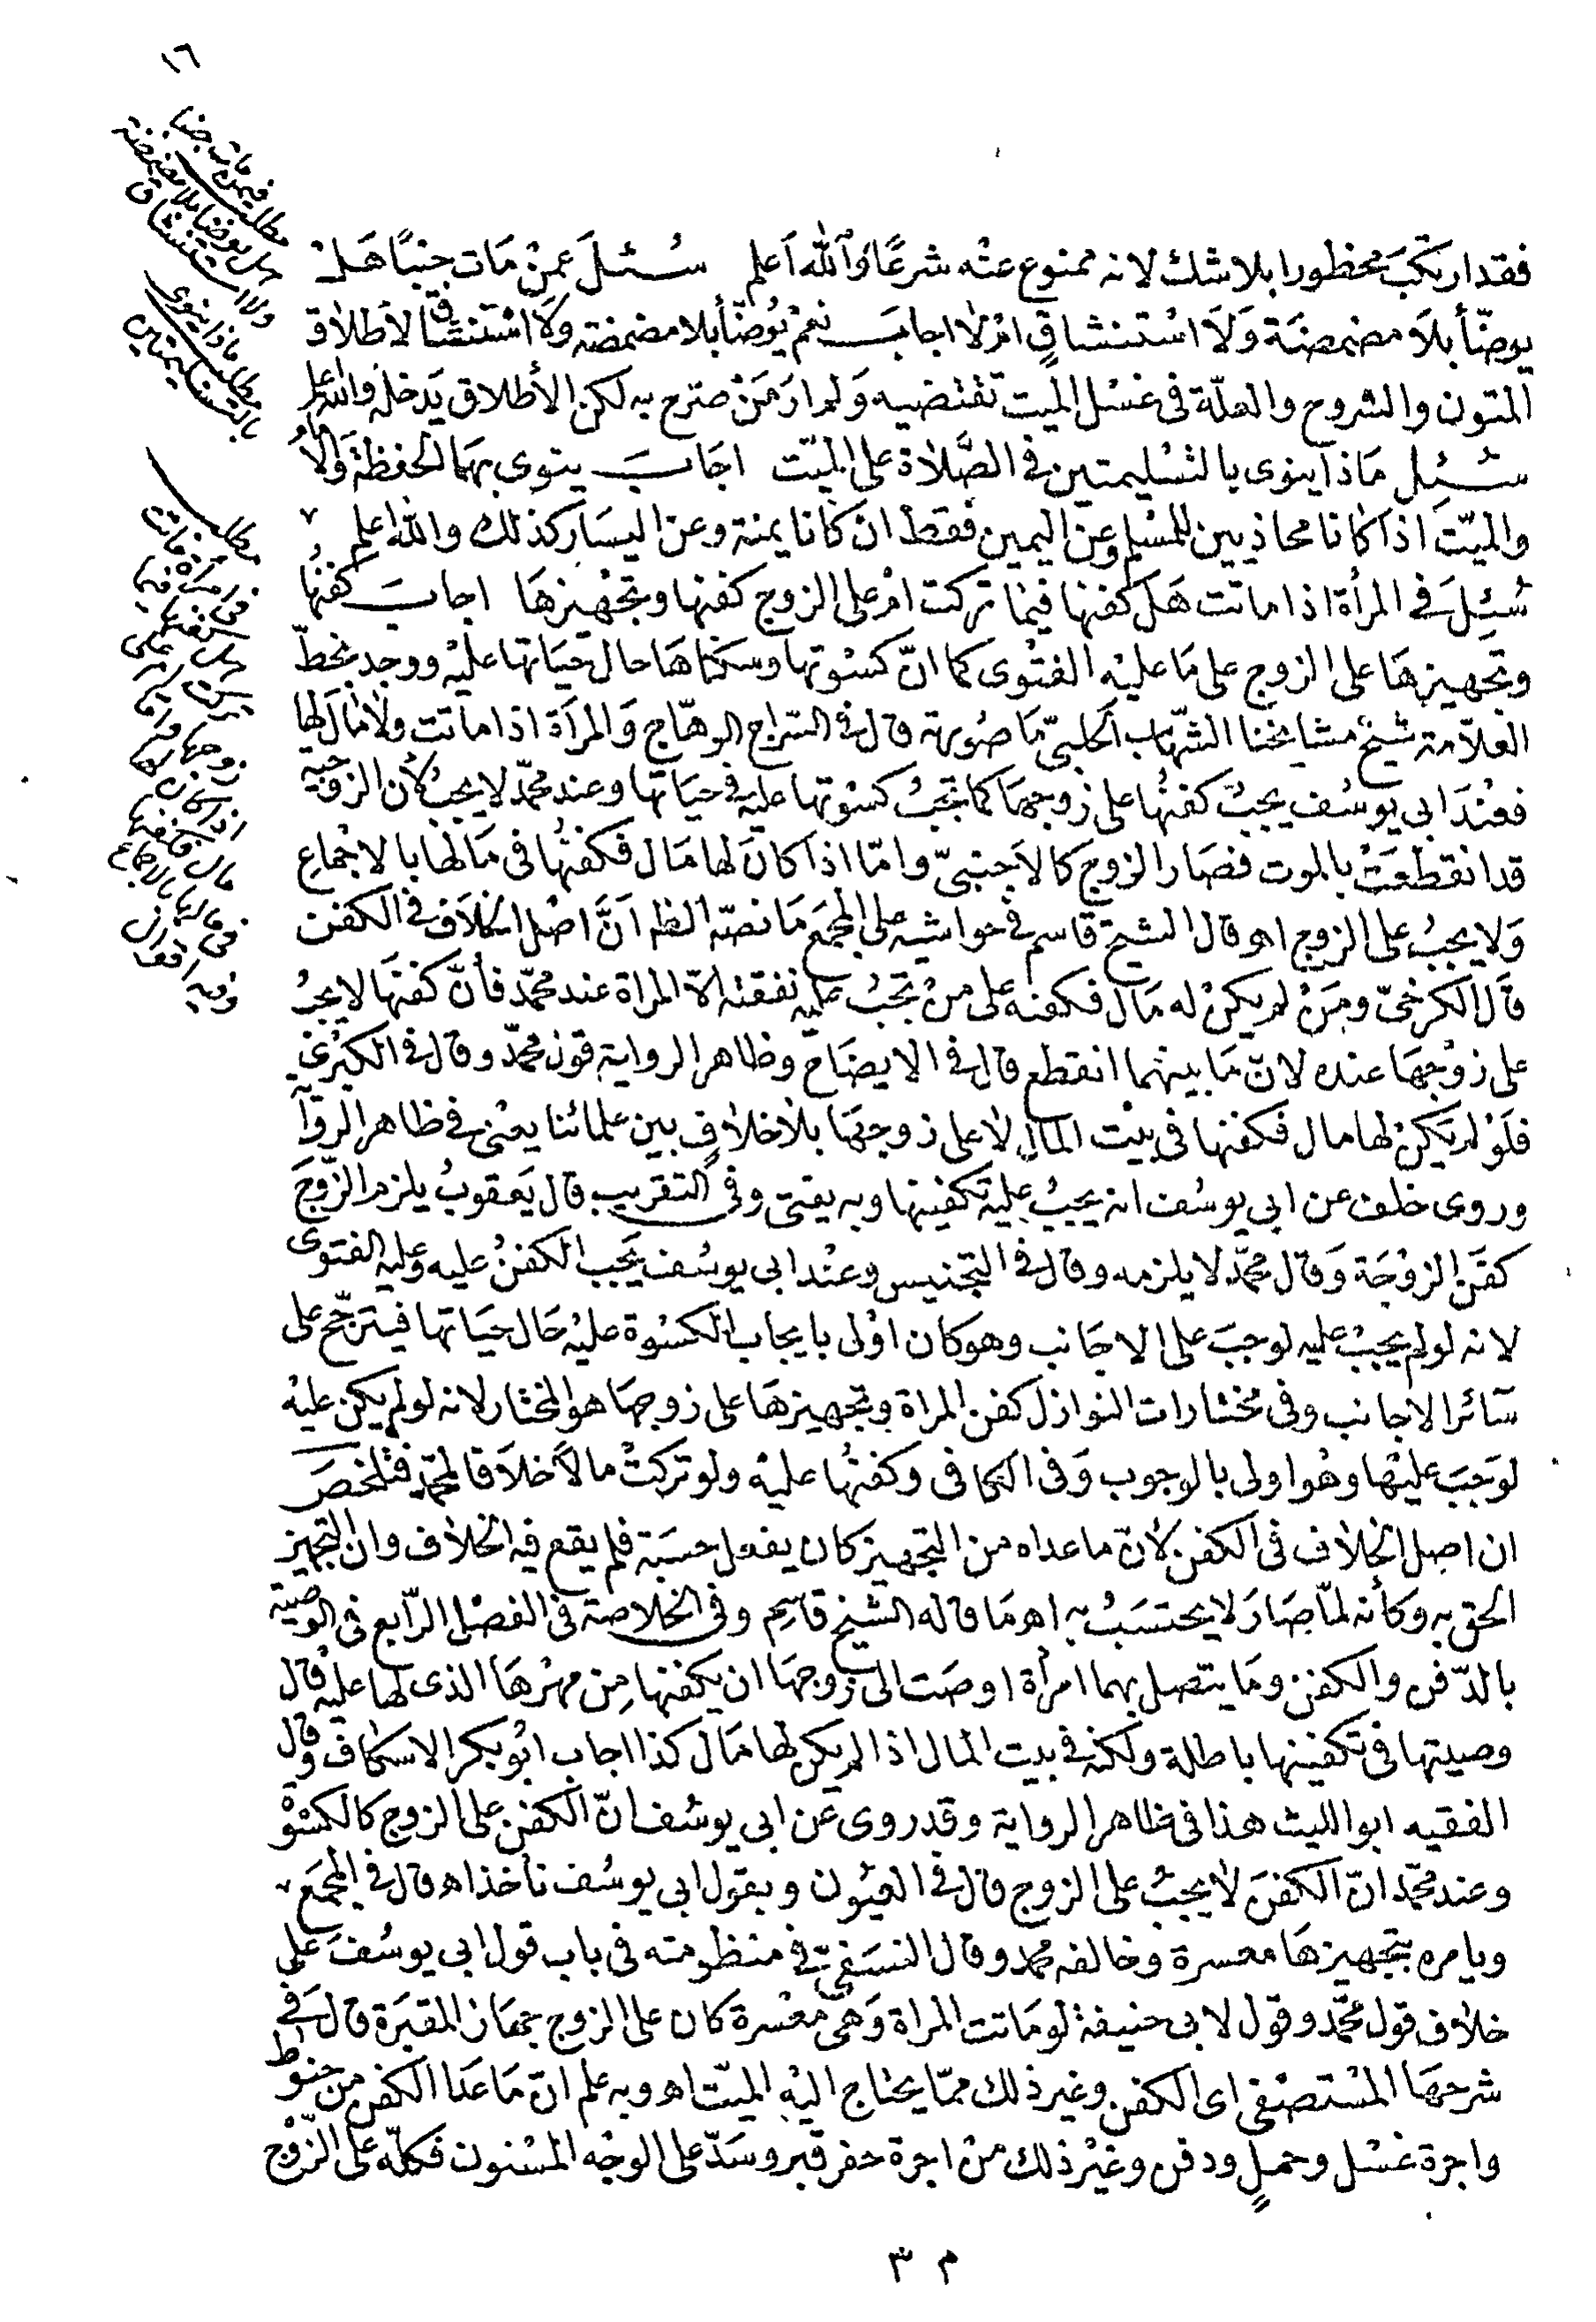 ١٦
مطلب فيمن مات جنبا
هل يوضأ بلا مضمضة
ولا استنشاق
مطلب ماذا ينوى
بالتسليمتين
مطلب
فى امرأة ماتت
هل كفنها فيما
تركت ام على
زوجها واما
اذا كان لها
مال فكفنها
فى مالها بالاجماع
وفيه اقوال
فقد ارتكبَ محظورا بلا شك لانه ممنوع عنْه شرعًا وَاللّٰه اَعلم سُئلَ عمنْ مَات جنبًا هَلْ
يوضّأ بلاَ مضمضَة وَلاَ اسْتنشاقٍ امْ لا اجابَ نعمْ يُوضّأ بلا مضمضة ولاَ اسْتنشاق لاطلاق
المتون والشروح والعلّة فى غسْل الميت تقتضيه وَلم ار مَنْ صرّح به لكن الأطلاق يَدخله والله اعلم
سُئِل مَاذا ينوى بالتسْليمتين فى الصَّلاة على الميّت اجَابَ ينوى بهمَا الحفظة وَالامام
والميّت اذا كانا محاذيين للمسْلم وعن اليمين فقط انْ كانا يمنة وعن اليسَار كذلك والله اعلم
سُئِلَ فى المرأة اذا ماتت هَل كفنها فيما تركت امْ على الزوج كفنها وتجْهيزهَا اجابَ كفنُها
وتجهيزهَا على الزوج على مَا عليْه الفتْوى كما انّ كسْوتها وسكناهَا حال حيَاتها عليْه ووجد بخطّ
العلاّمة شيْخ مشايخنا الشهَاب الحلبىّ مَا صُورته قال فى السّراج الوهّاج وَالمرأة اذا ماتت ولا مَال لها
فعنْدَ ابى يوسُف يجبُ كفنُها على زوجهَا كما تجبُ كسْوتها عليه فى حيَاتها وعند محمّد لا يجبُ لأن الزوجية
قد انقطعَتْ بالموت فصَار الزوج كالاَجنبىّ وامّا اذا كانَ لها مَال فكفنُها فى مَالها بالاجْماع
وَلا يجبُ على الزوج اهـ وقال الشيخ قاسم فى حواشيه على المجْمَع مَا نصّه الظاهر اَنَّ اصْل الخلاَف فى الكفن
قال الكرخىّ ومَنْ لم يكنْ له مَال فكفنه على منْ تجبُ عليه نفقته الاّ المراة عند محمّد فأنّ كفنهَا لا يجبُ
على زوْجهَا عنده لانّ مَا بينهُما انقطع قال فى الايضَاح وظاهر الرواية قول محمّد وقال فى الكبْرى
فلَوْ لم يَكنْ لها مال فكفنها فى بيْت المال لا على زوجهَا بلا خلافٍ بين علمائنا يعْنى فى ظاهر الرواية
وروى خلف عن ابى يوسُف انه يجبُ عليْه تكفينها وبه يفتى وفى التقريب قال يَعقوبُ يلزم الزّوجَ
كفَن الزوْجَة وَقال محمّد لا يلزمه وقال فى التجنيس وعنْد ابى يوسُف يَجب الكفنُ عليه وعليه الفتوى
لانه لو لم يجبْ عليه لوجبَ على الاجَانب وهو كان اوْلى بايجاب الكسْوة عليْه حَال حيَاتها فيترجّح على
سَائر الاجانب وفى مختارات النوازل كفن المراة وتجهيزهَا على زوجهَا هو المختار لانه لو لم يكن عليْه
لوَجبَ عليْها وهُو اولى بالوجوب وَفى الكافى وكفنُها عليْه ولو تركتْ مالاً خلاَفا لمحمّد فتلخصَ
ان اصل الخلاف فى الكفن لانّ ما عداه من التجهيز كان يفعل حسبَة فلم يقع فيه الخلاف وان التجهيز
الحق به وكأنه لمّا صَارَ لا يحتسَبُ به اهـ مَا قاله الشيخ قاسم وفى الخلاصة فى الفصْل الرّابع فى الوصية
بالدّفن والكفن ومَا يتصل بهما امرأة اوصَت الى زوجهَا ان يكفنها مِن مهْرهَا الذى لها عليْه قال
وصيتها فى تكفينها باطلة ولكنه فى بيت المال اذا لم يكن لها مَال كذا اجاب ابُو بكر الاسكاف وقال
الفقيه ابو الليث هذا فى ظاهر الرواية وقد روى عَن ابى يوسُف انّ الكفن على الزوج كالكسْوة
وعند محمّد انّ الكفنَ لا يجبُ على الزوج قال فى العيُون وبقول ابى يوسُف نأخذ اهـ قال فى المجمَع
ويامره بتجْهيزهَا معسرة وخالفه محمد وقال النسَفىّ فى منظومته فى باب قول ابى يوسُف على
خلاف قول محمّد وقول لابى حنيفة لو مَاتت المراة وَهى معْسرة كان على الزوج جهَاز المقبَرة قال فى
شرحهَا المسْتصْفى اى الكفن وغير ذلك ممّا يحتاج اليْه الميّت اهـ وبه علم انّ مَا عَدا الكفن من حنوط
واجرة غسْل وحملٍ ودفن وغيْر ذلك منْ اجرة حفر قبر وسَدّ على الوجْه المسْنون فكلّه على الزّوْج
م ٣